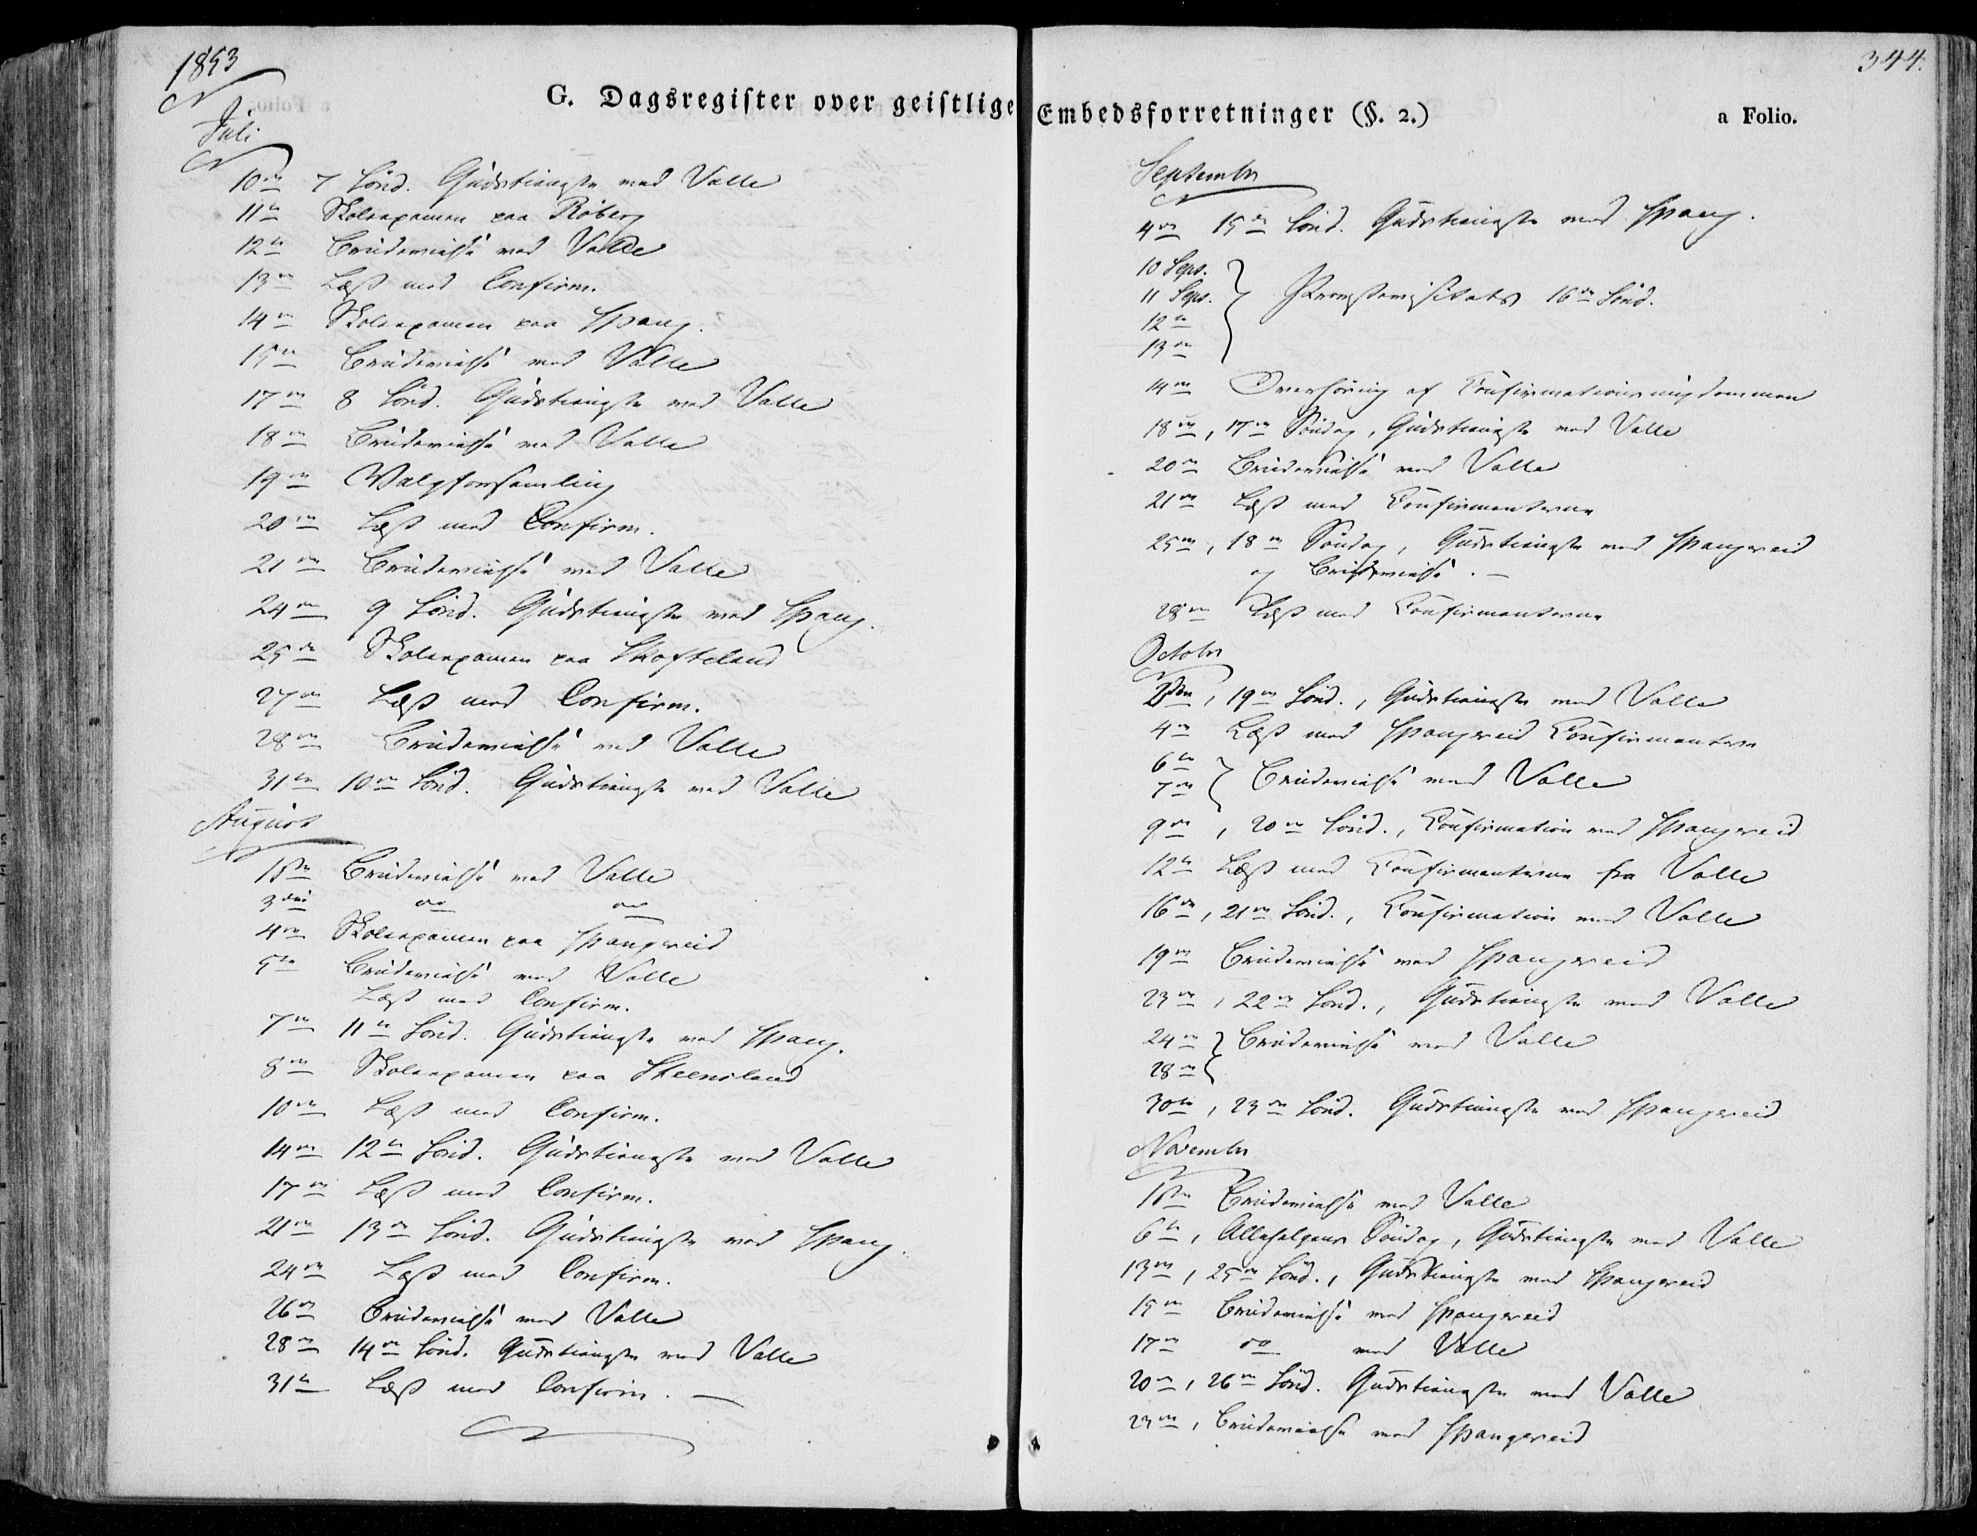 1853
344.
G. Dagsregister over geistlige Embedsforretninger (§. 2.)
a Folio.
Juli
10de 7 Sönd. Gudstieneste ved Valle
11te Skoleexamen paa Röberg
12te Brudevielse ved Valle
13de Læst med Confirm.
14de Skoleexamen paa Spang.
15de Brudevielse ved Valle
17de 8 Sönd. Gudstieneste ved Valle
18de Brudevielse ved Valle
19de Valgforsamling
20de Læst med Confirm.
21de Brudevielse ved Valle
24de 9 Sönd. Gudstieneste ved Spang.
25de Skoleexamen paa Skofteland
27de Læst med Confirm.
28de Brudevielse ved Valle
31te 10de Sönd. Gudstieneste ved Valle
August
1ste Brudevielse ved Valle
3die do do
4de Skoleexamen paa Spangereid
5te Brudevielse ved Valle
Læst med Confirm.
7de 11te Sönd. Gudstieneste ved Spang.
8de Skoleexamen paa Steensland
10de Læst med Confirm.
14de 12te Sönd. Gudstieneste ved Valle
17de Læst med Confirm.
21de 13de Sönd. Gudstieneste ved Spang.
24de Læst med Confirm.
26de Brudevielse ved Valle
28de 14de Sönd. Gudstieneste ved Valle
31te Læst med Confirm. —
September
4de 15de Sönd. Gudstieneste ved Spang.
10 Sept.
11 Sept. Provstevisitats 16de Sönd.
12te
13de
14de Overhöring af Confirmationsungdommen
18de, 17de Söndag, Gudstieneste ved Valle
20de Brudevielse ved Valle
21de Læst med Confirmanterne
25de, 18de Söndag, Gudstieneste ved Spangereid
og Brudevielse. —
28de Læst med Confirmanterne
October
2den, 19de Sönd., Gudstieneste ved Valle
4de Læst med Spangereid Confirmanter
6te
7de Brudevielse ved Valle
9de, 20de Sönd., Confirmation ved Spangereid
12te Læst med Confirmanterne fra Valle
16de, 21de Sönd., Confirmation ved Valle
19de Brudevielse ved Spangereid
23de, 22de Sönd., Gudstieneste ved Valle
24de Brudevielse ved Valle
28de
30te, 23de Sönd. Gudstieneste ved Spangereid
November
1ste Brudevielse ved Valle
6te, Allehelgens Söndag, Gudstieneste ved Valle
13de, 25de Sönd., Gudstieneste ved Spangereid
15de Brudevielse ved Spangereid
17de do ved Valle
20de, 26de Sönd. Gudstieneste ved Valle
23de, Brudevielse ved Spangereid